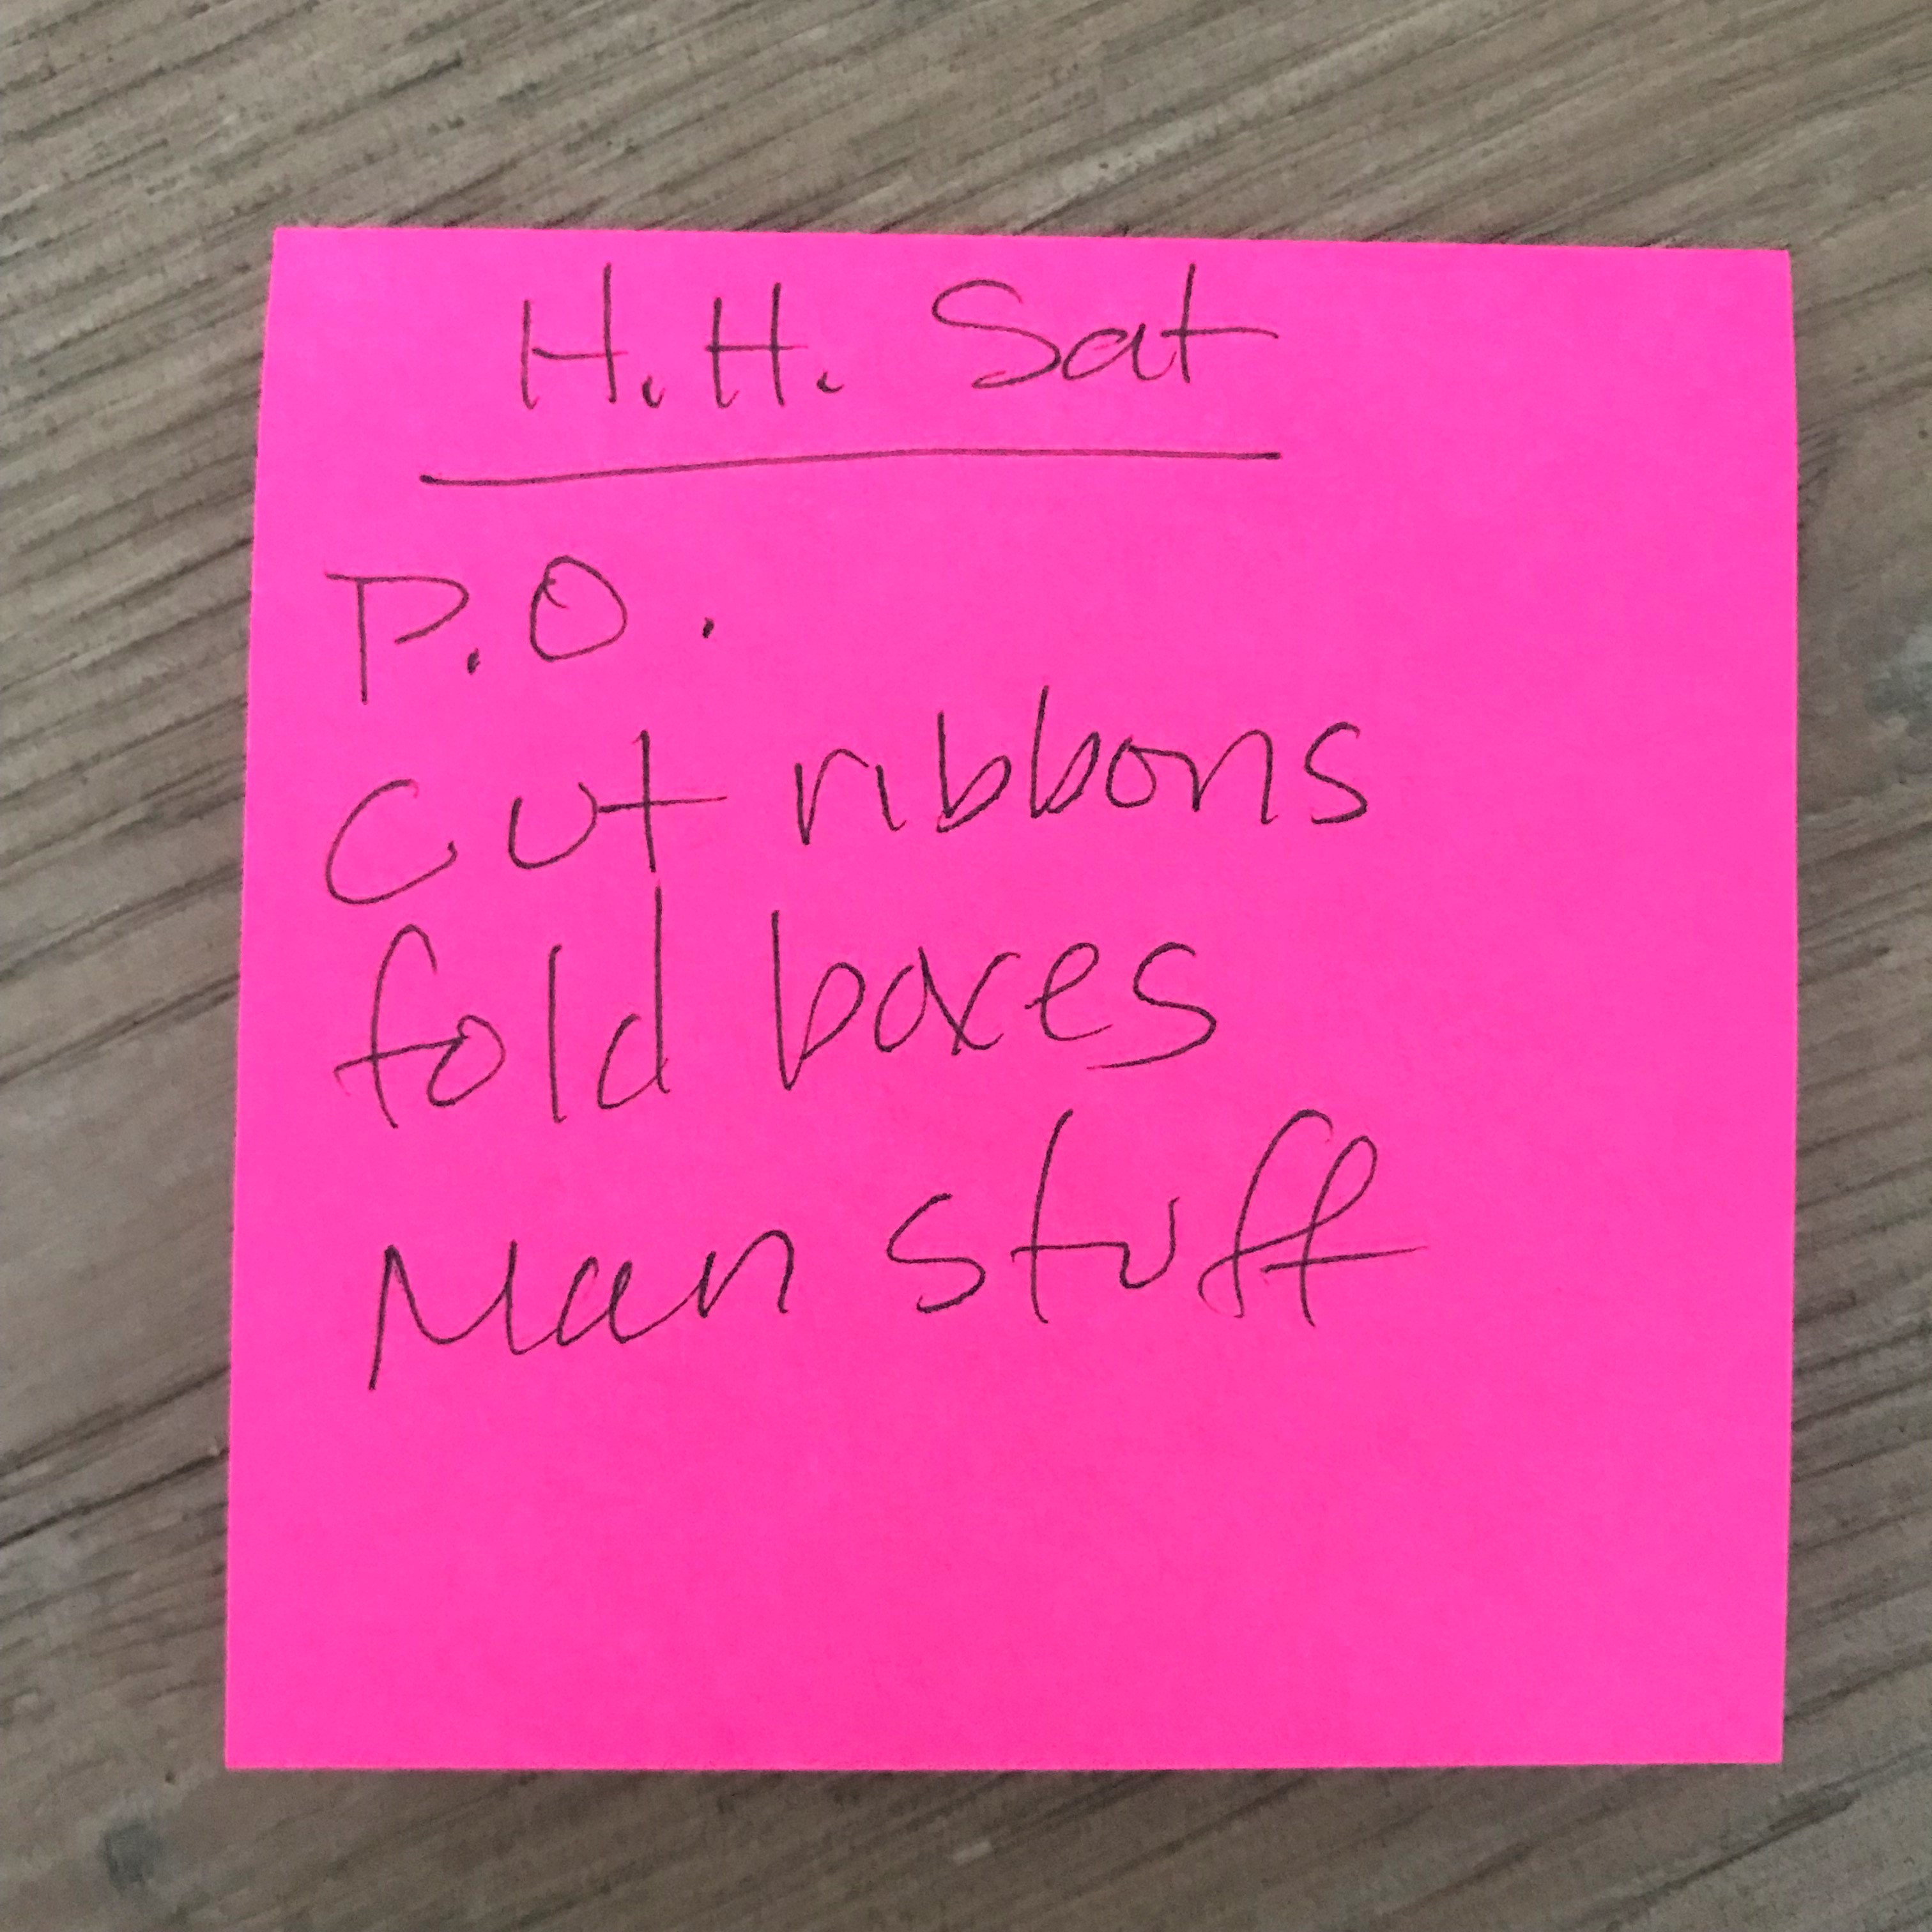 H.H. Sat
P.O.
Cut ribbons
fold boxes
Man stuff